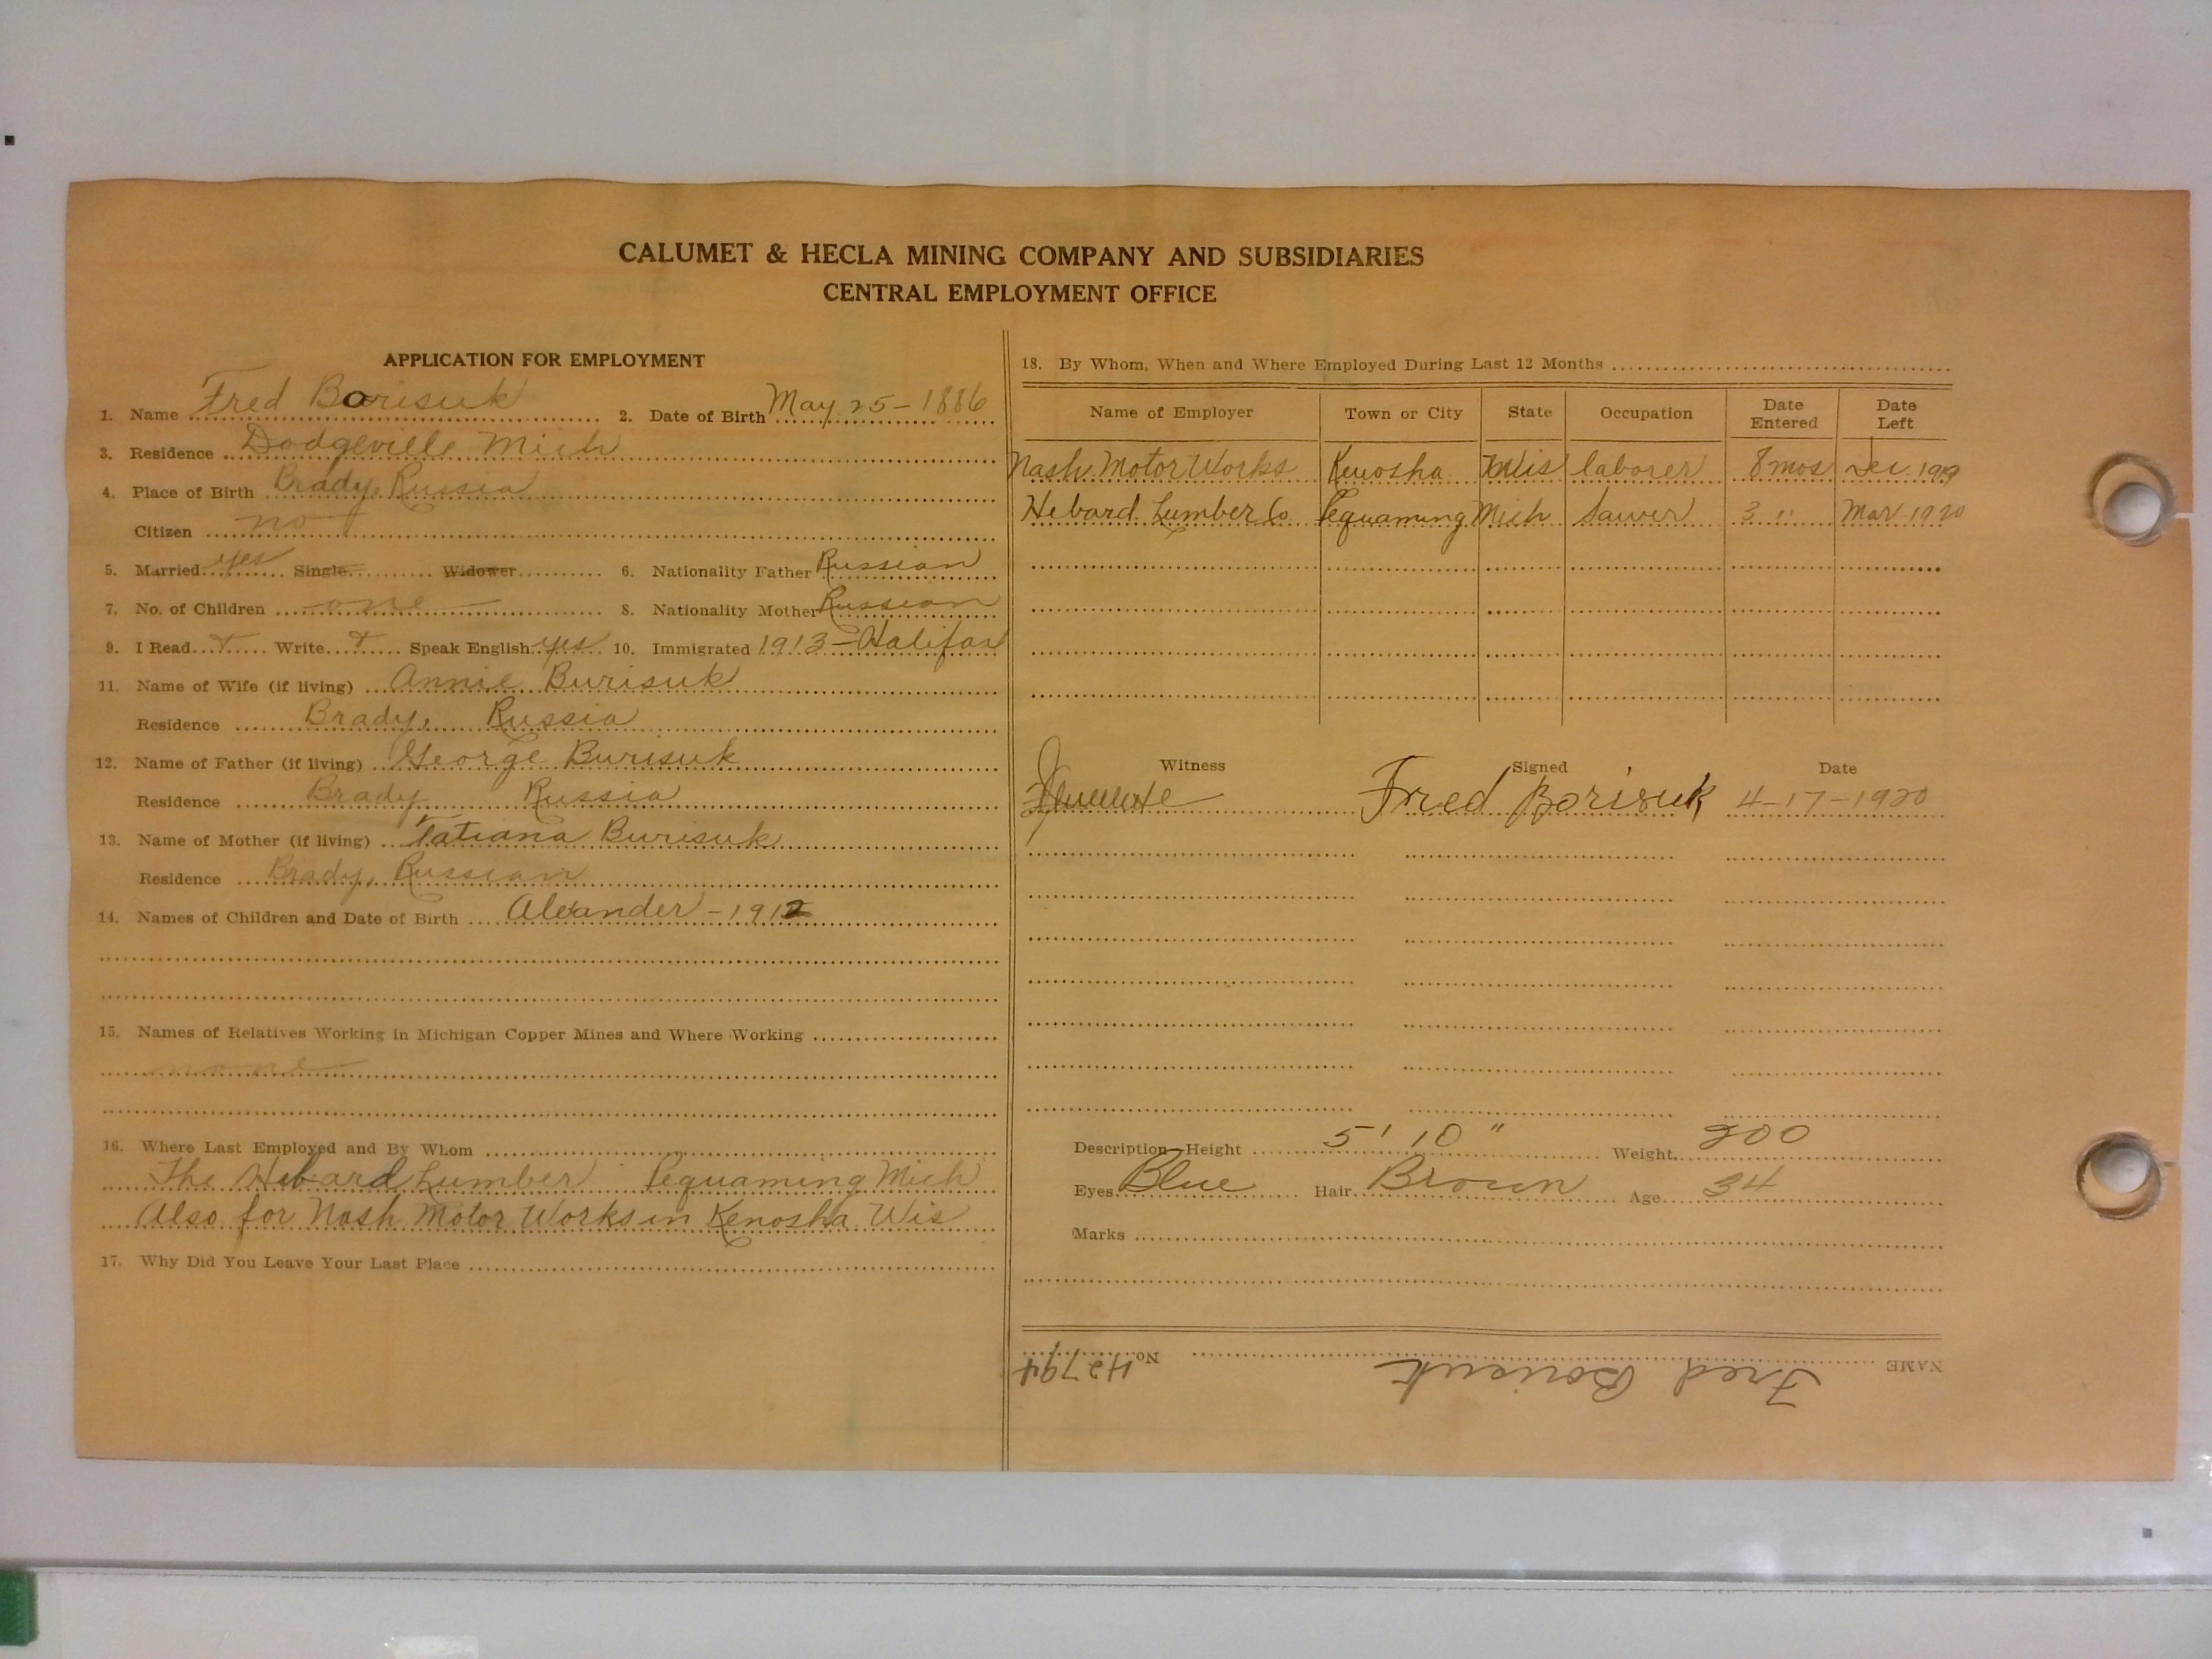 CALUMET & HECLA MINING COMPANY AND SUBSIDIARIES
CENTRAL EMPLOYMENT OFFICE
APPLICATION FOR EMPLOYMENT
1. Name Fred Borisuk 2. Date of Birth May 25-1886
3. Residence Dodgeville Mich
4. Place of Birth Brady, Russia
Citizen no
5. Married yes Single Widower 6. Nationality Father Russian
7. No. of Children one 8. Nationality Mother Russian
9. I Read Write Speak English yes 10. Immigrated 1913-Halifax
11. Name of Wife (if living) Annie Burisuk
Residence Brady, Russia
12. Name of Father (if living) George Burisuk
Residence Brady Russia
13. Name of Mother (if living) Tatiana Burisuk
Residence Brady, Russian
14. Names of Children and Date of Birth Alexander-1912
15. Names of Relatives Working in Michigan Copper Mines and Where Working
none
16. Where Last Employed and By Whom
The Hebard Lumber Pequaming Mich
Also for Nash Motor Works in Kenosha Wis
17. Why Did You Leave Your Last Place
18. By Whom, When and Where Employed During Last 12 Months
Name of Employer Town or City State Occupation Date Entered Date Left
Nash Motor Works Kenosha Wis laborer 8 mos Dec. 1919
Hebard Lumber Co Pequaming Mich Sawer 3 " Mar 1920
Witness Signed Date
Fred Borisuk 4-17-1920
Description—Height 5' 10" Weight 200
Eyes Blue Hair Brown Age 34
Marks
NAME Fred Borisuk No. 42794